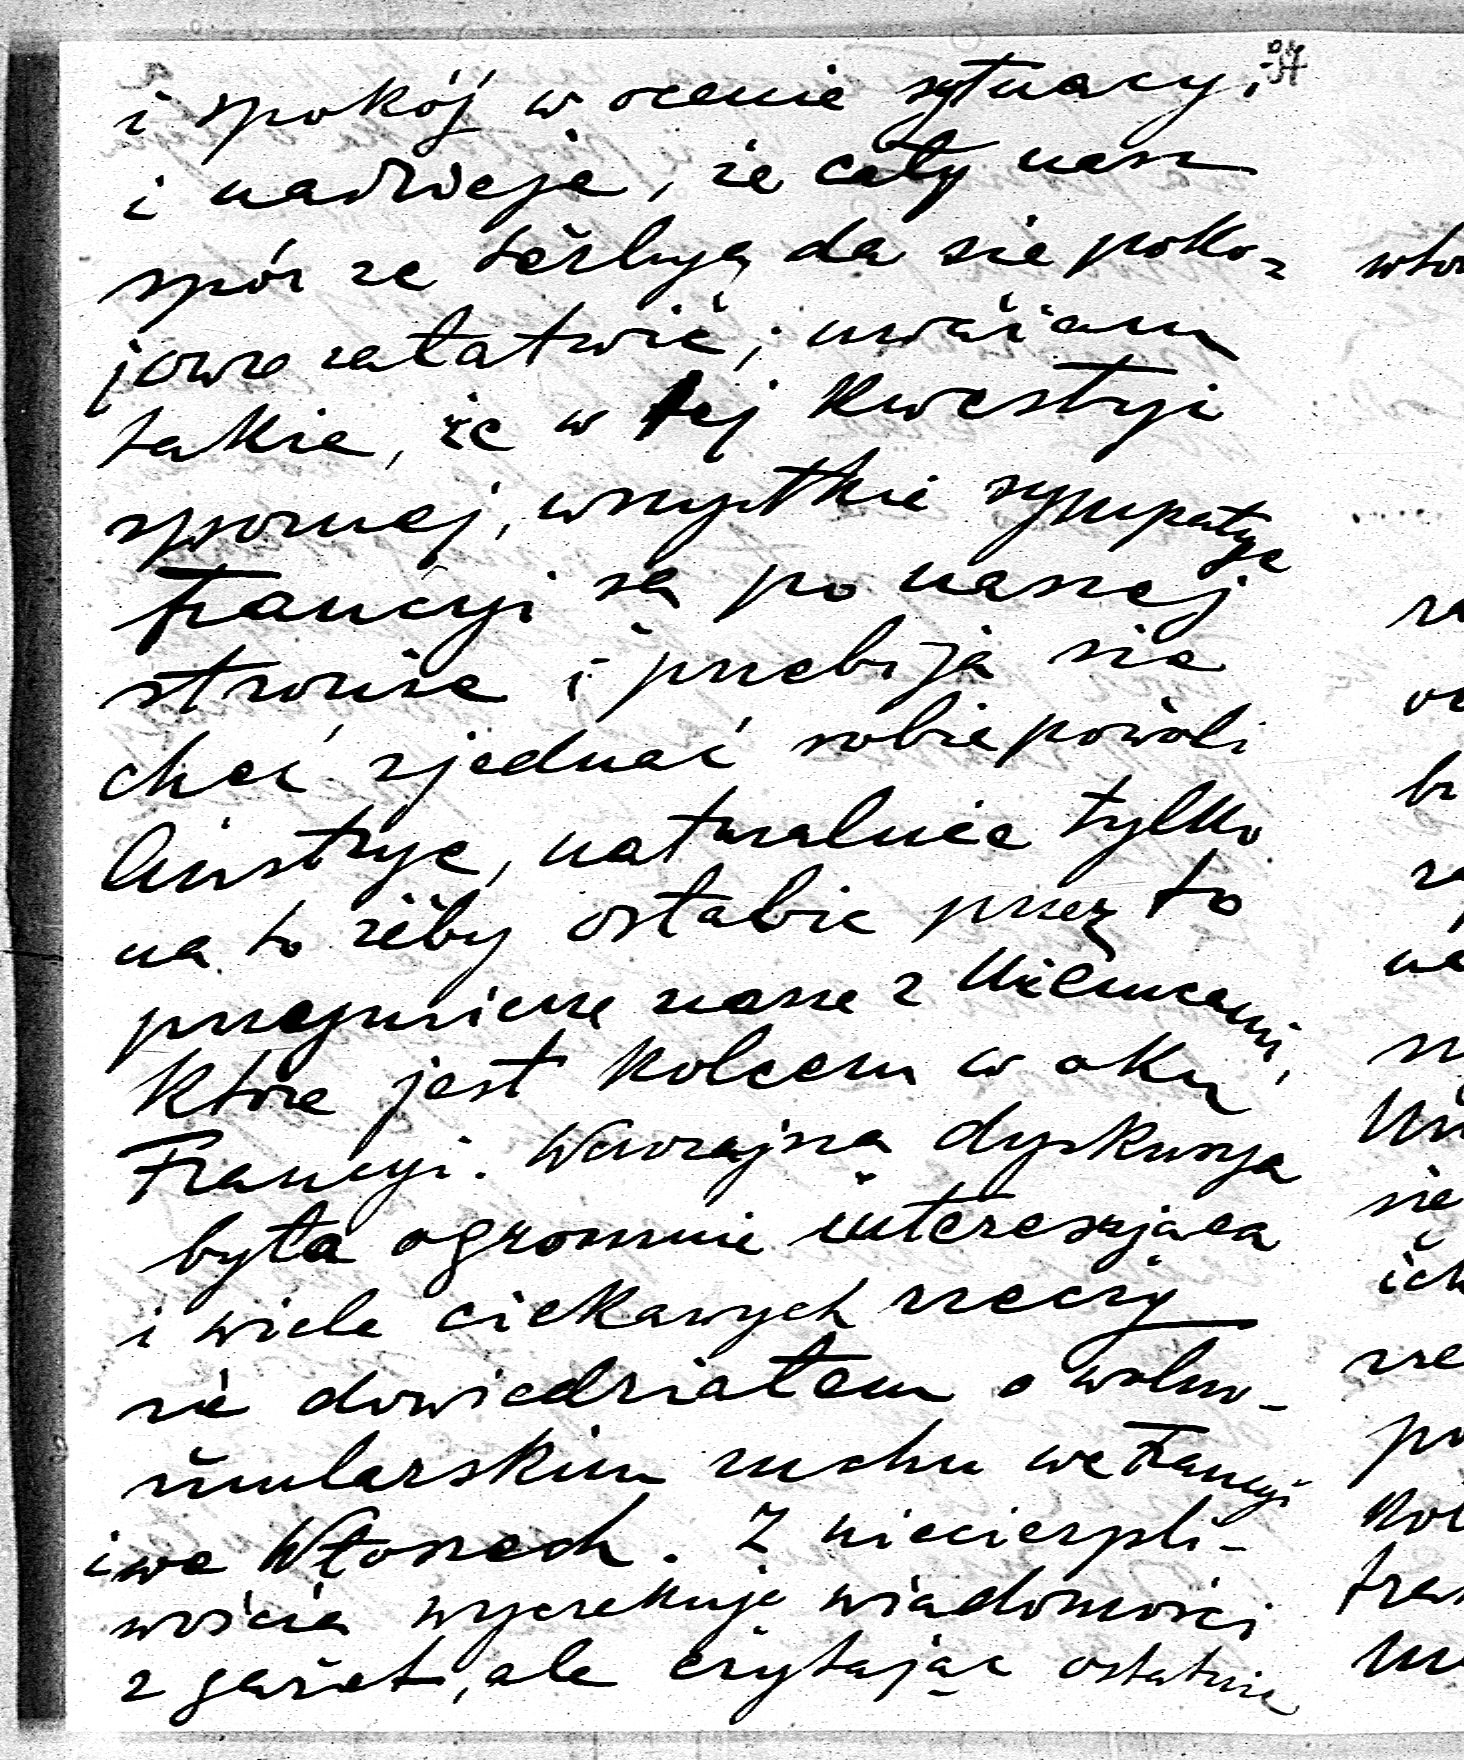 34
i spokój w ocenie sytuacyi
i nadzieję, że cały nasz
spór ze Serbyą da się poko-
jowo załatwić; uważam
także, że w tej kwestyi
spornej, wszystkie sympatye
Francyi są po naszej
stronie i przebija się
chęć zjednać sobie powoli
Austryę, naturalnie tylko
na to żeby osłabić przez to
przymierze nasze z Niemcami,
które jest kolcem w oku
Francyi. Wczorajsza dyskusya
była ogromnie interesująca
i wiele ciekawych rzeczy
się dowiedziałem o wolno-
mularskim ruchu we Francyi
i we Włoszech. Z niecierpli-
wością wyczekuję wiadomości
z gazet, ale czytając ostatnie